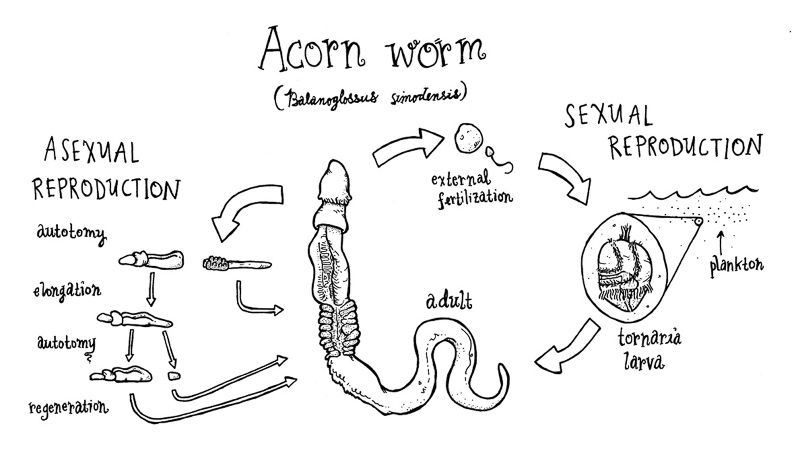 Acorn worm
(Balanoglossus simodensis)
ASEXUAL
REPRODUCTION
autotomy
elongation
autotomy
regeneration
adult
SEXUAL
REPRODUCTION
external
fertilization
plankton
tornaria
larva